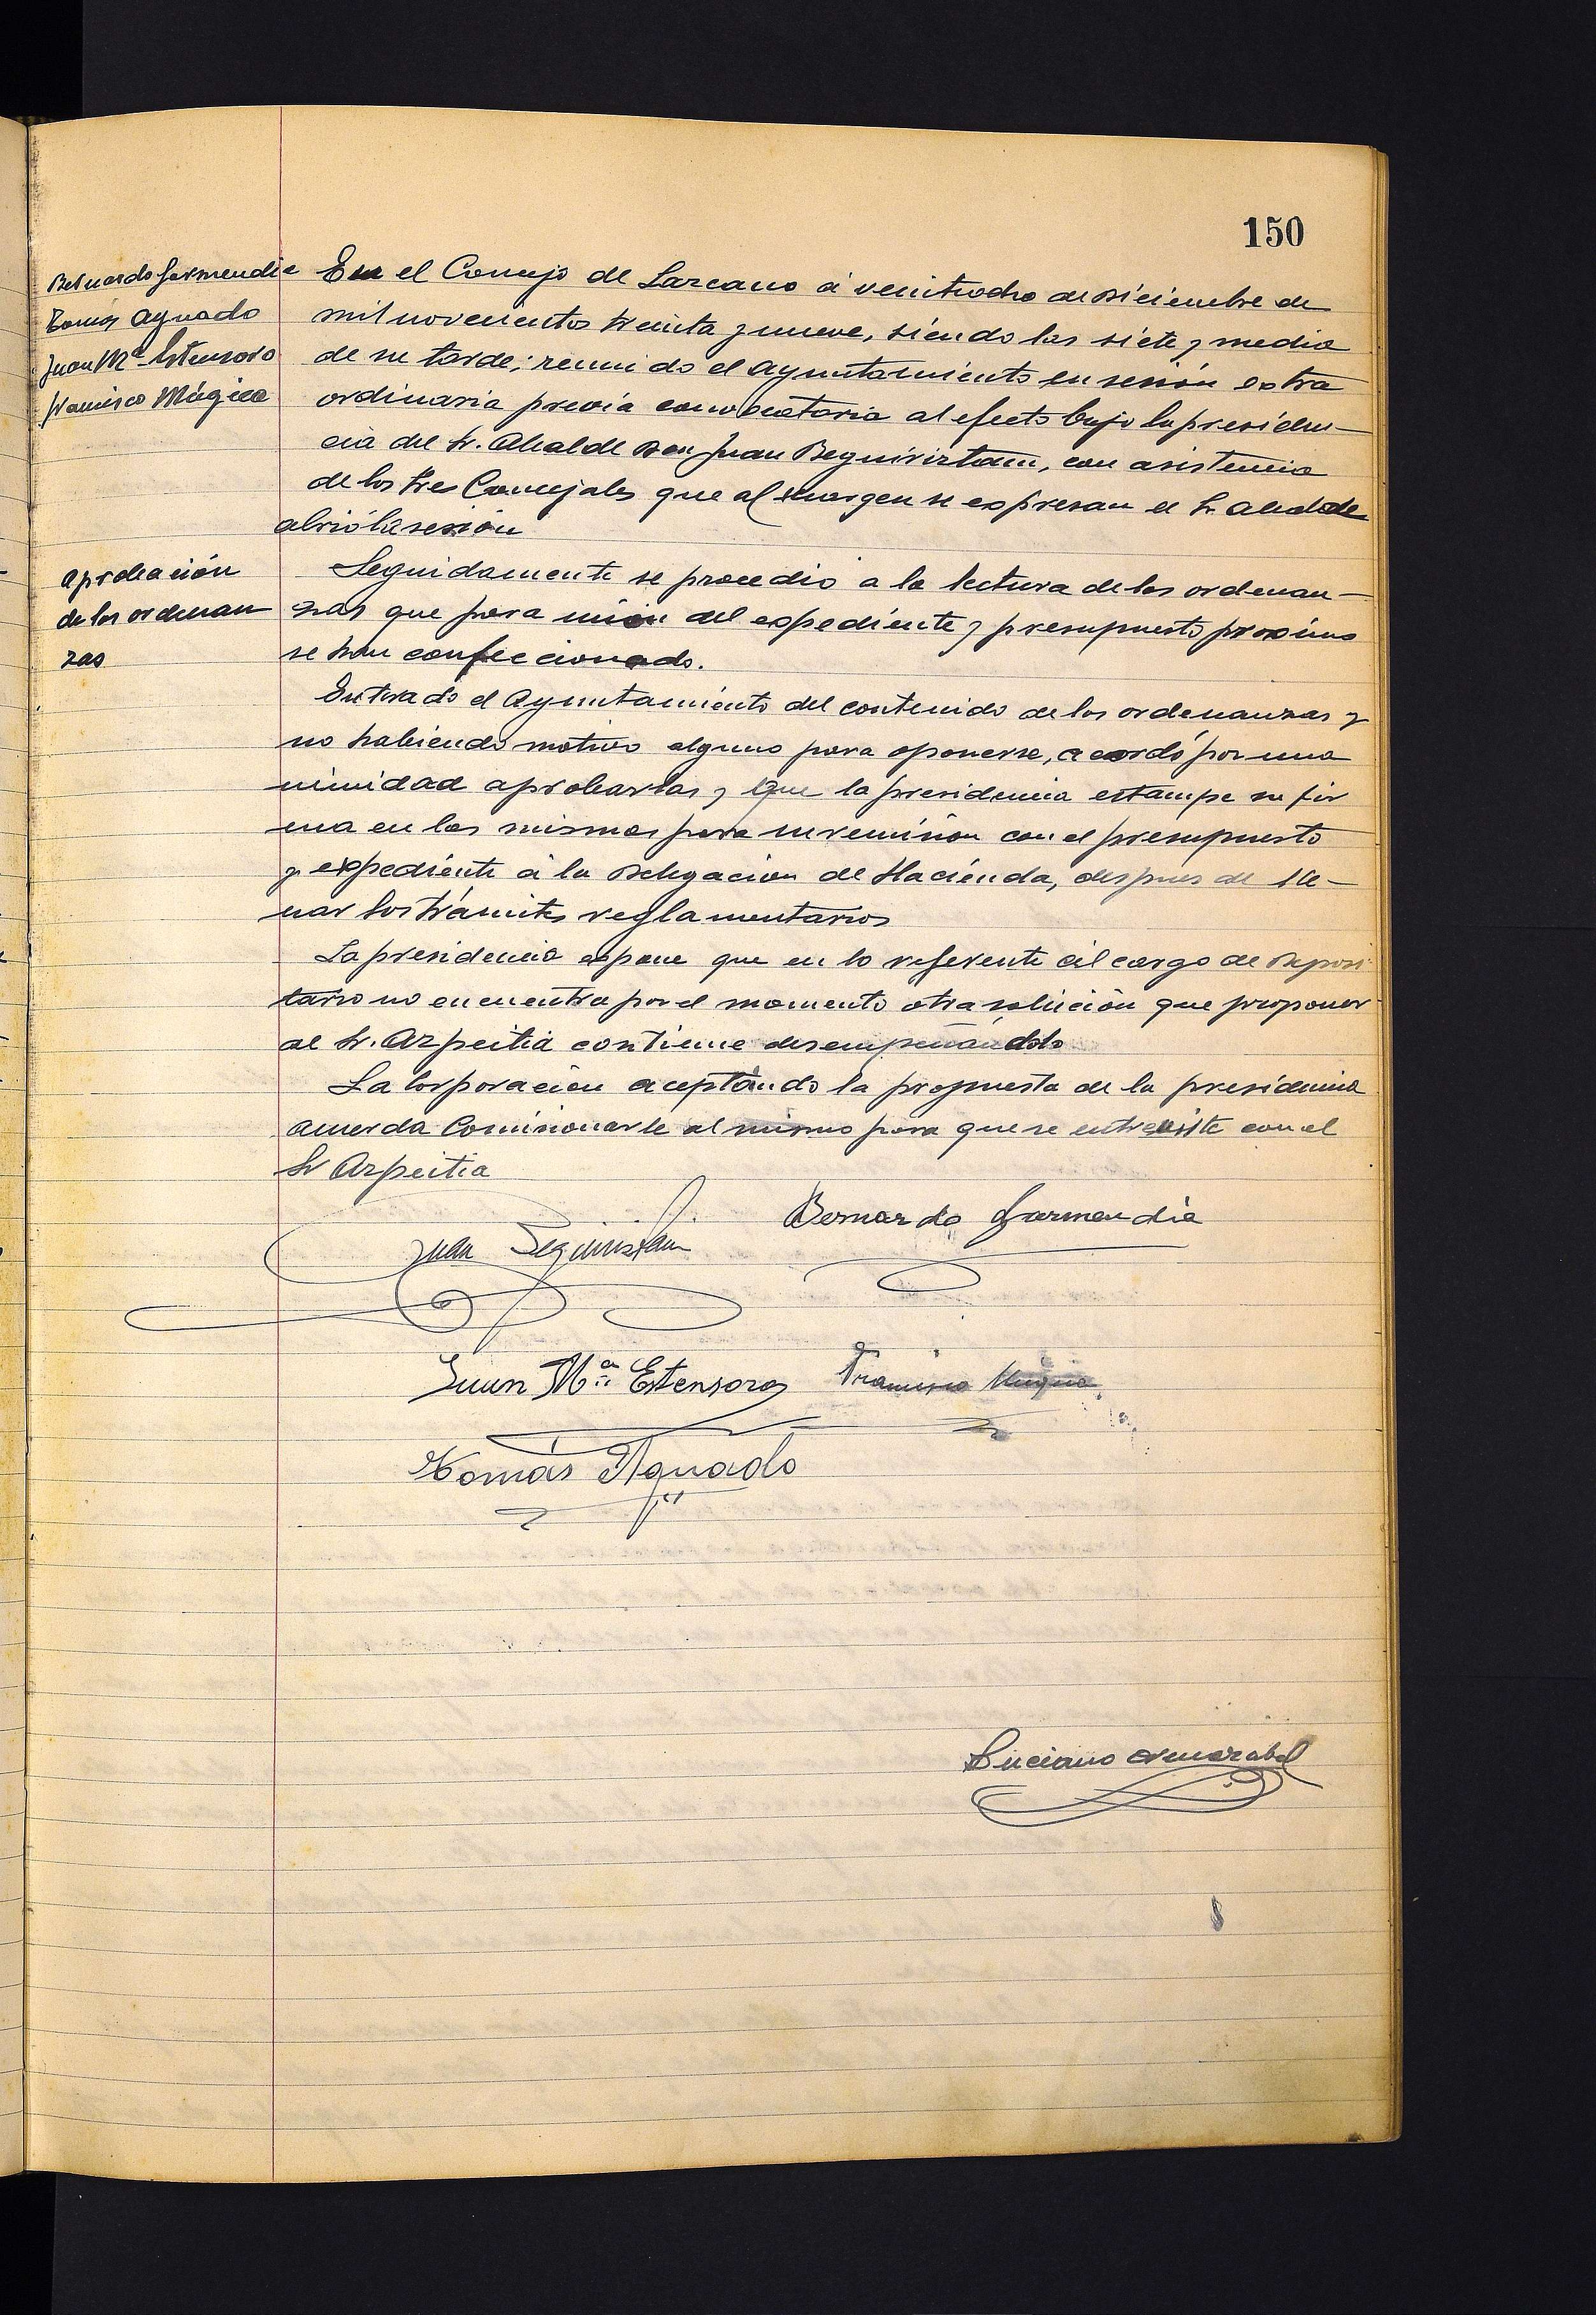 150
Bernardo Garmendia
Tomás Aguado
Juan Mª Estensoro
Francisco Múgica
En el Concejo de Lazcano á veintiocho de Diciembre de
mil novecientos treinta y nueve, siendo las siete y media
de su tarde; reunido el Ayuntamiento en sesión extra
ordinaria previa convocatoria al efecto bajo la presiden-
cia del Sr. Alcalde Don Juan Beguiristain, con asistencia
de los tres Concejales que al margen se expresan el Sr. Alcalde
abrió la sesión
Aprobación
de las ordenan
zas
Seguidamente se procedió a la lectura de las ordenan-
zas que para unión del expediente y presupuesto proximo
se han confeccionado.
Enterado el Ayuntamiento del contenido de las ordenanzas y
no habiendo motivo alguno para oponerse, acordó por una
nimidad aprobarlas y que la presidencia estampe su fir
ma en las mismas para su remisión con el presupuesto
y expediente á la Delegación de Hacienda, despues de lle-
nar los trámites reglamentarios
La presidencia expone que en lo referente al cargo de Deposi
tario no encuentra por el momento otra solución que proponer
al Sr. Azpeitia continue desempeñándolo
La Corporación aceptando la propuesta de la presidencia
acuerda comisionarle al mismo para que se entreviste con el
Sr Azpeitia
Juan Beguiristain
Bernardo Garmendia
Juan Mª Estensoro
Francisco Mugica
Tomás Aguado
Luciano